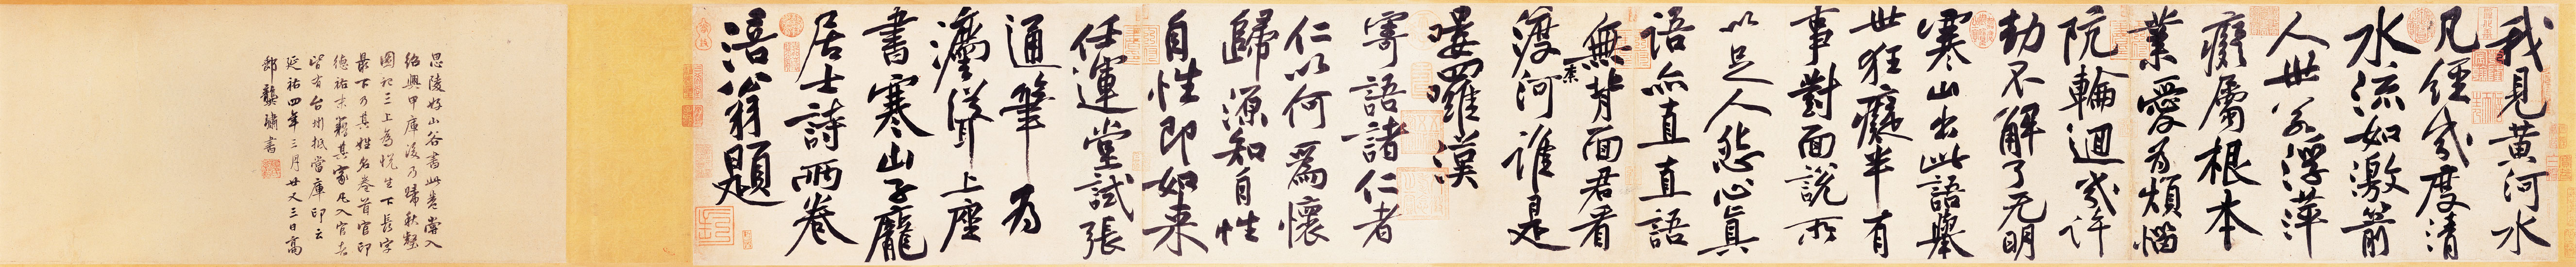 我見黃河水
凡經幾度清
水流如激箭
人世若浮萍
癡屬根本
業愛為煩惱
阬輪迴幾許
劫不解了无明
寒山出此語舉
世狂癡半有
事對面說所
以足人怨心真
語亦直直語
無背面君看
渡奈河誰是
嘍囉漢
寄語諸仁者
仁以何為懷
歸源知自性
自性即如來
任運堂試張
通筆為
灋聳上座
書寒山子龐
居士詩兩卷
涪翁題
思陵好山谷書此卷嘗入
紹興甲庫後乃歸秋壑
圖記三上為悅生下長字
最下乃其姓名卷首官印
德祐末籍其家凡入官者
皆有台州抵當庫印云
延祐四年三月廿又三日高
郵龔璛書